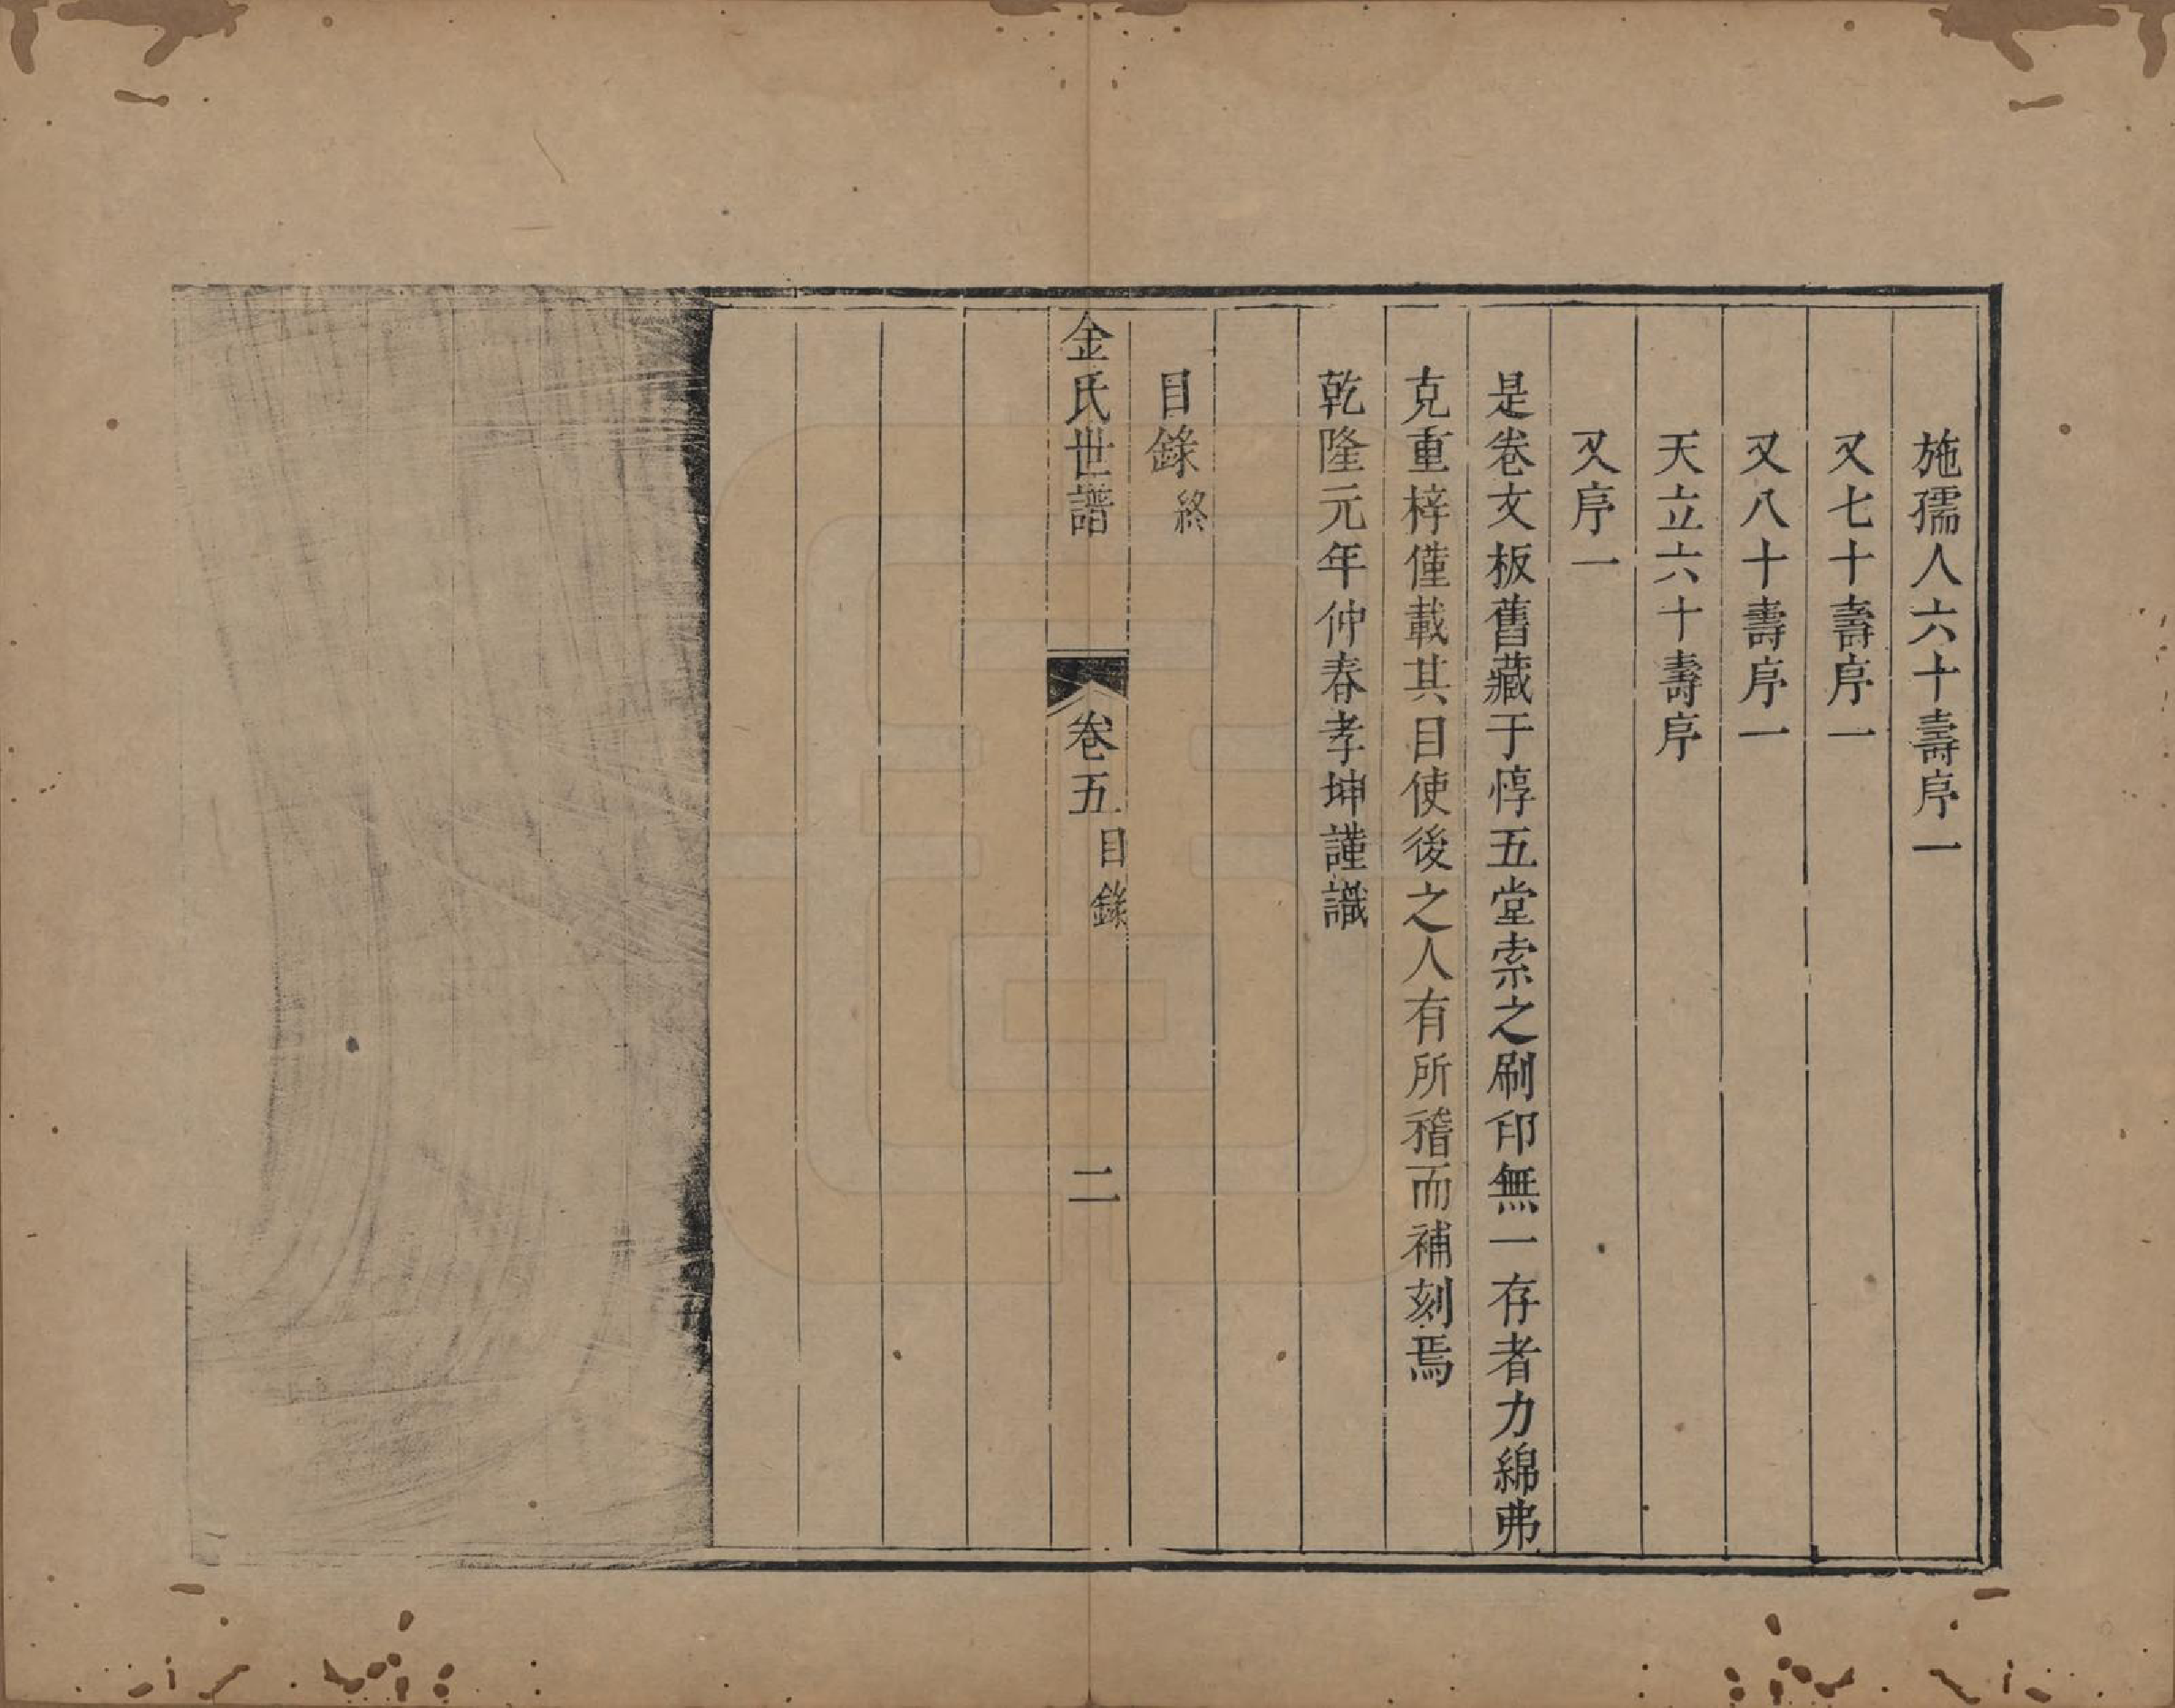 施孺人六十壽序一
又七十壽序一
又八十壽序一
天立六十壽序
又序一
是卷文板舊藏于惇五堂索之刷印無一存者力綿弗
克重梓僅載其目使後之人有所稽而補刻焉
乾隆元年仲春孝坤謹識
目錄終
金氏世譜 卷五目錄 二